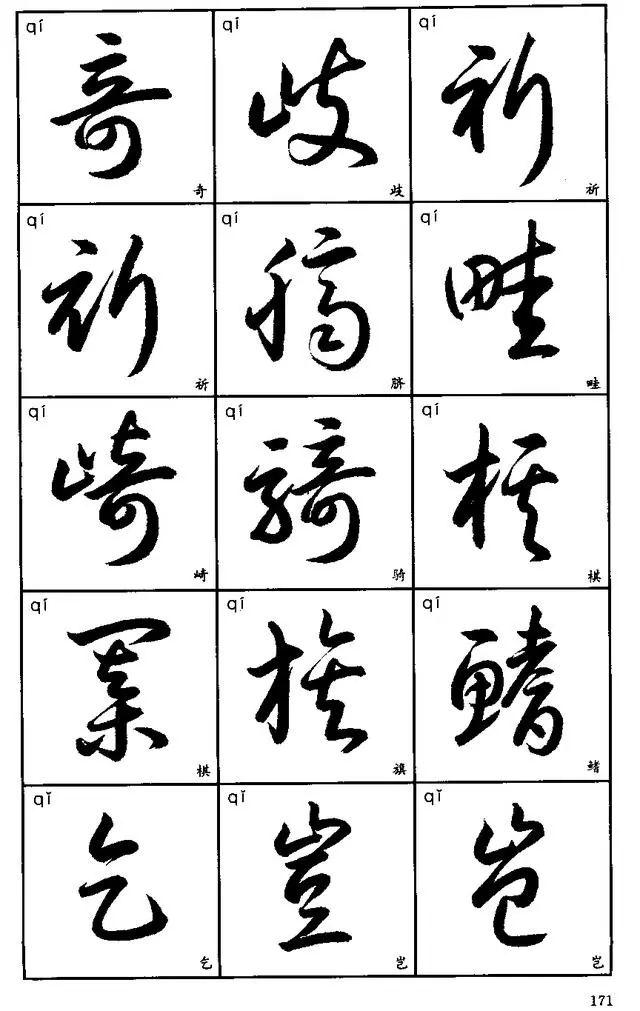 qí qí qí
奇 歧 祈
奇 歧 祈
qí qí qí
祈 臍 畦
祈 脐 畦
qí qí qí
崎 騎 棋
崎 骑 棋
qí qí qí
棊 旗 鰭
棋 旗 鳍
qǐ qǐ qǐ
乞 豈 岂
乞 岂 岂
171